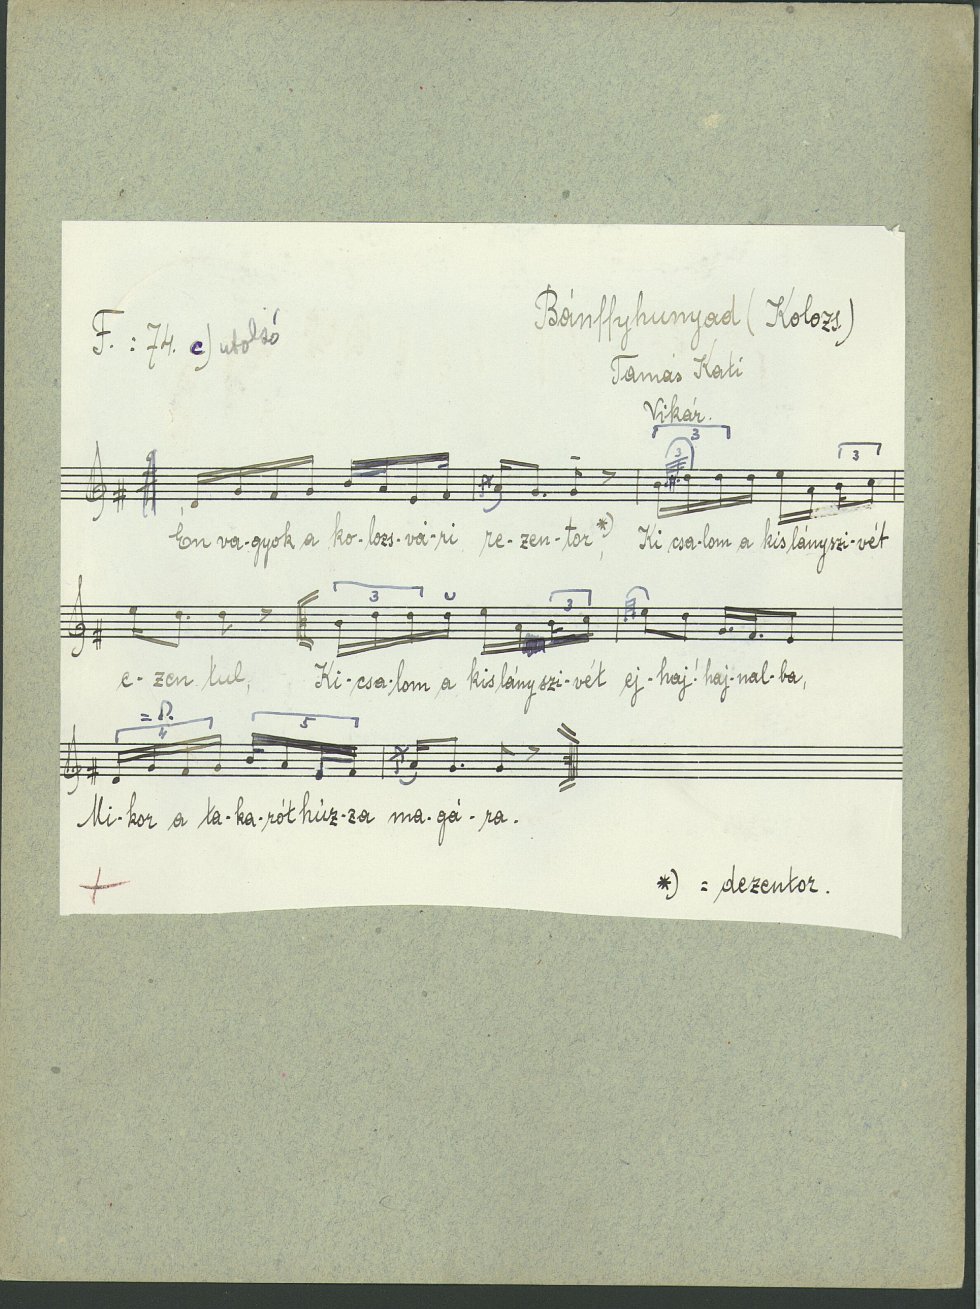 F. : 74. c) utolsó
Bánffyhunyad (Kolozs)
Tamás Kati
Vikár.
3
3
3
Én va-gyok a ko-lozs-vá-ri re-zen-tor*), Ki csa-lom a kislányszi-vét
3
3
e-zen tul, Ki-csa-lom a kislány szi-vét ej-haj! haj-nal-ba,
4
5
Mi-kor a ta-ka-rót húz-za ma-gá-ra.
*) = dezentor.